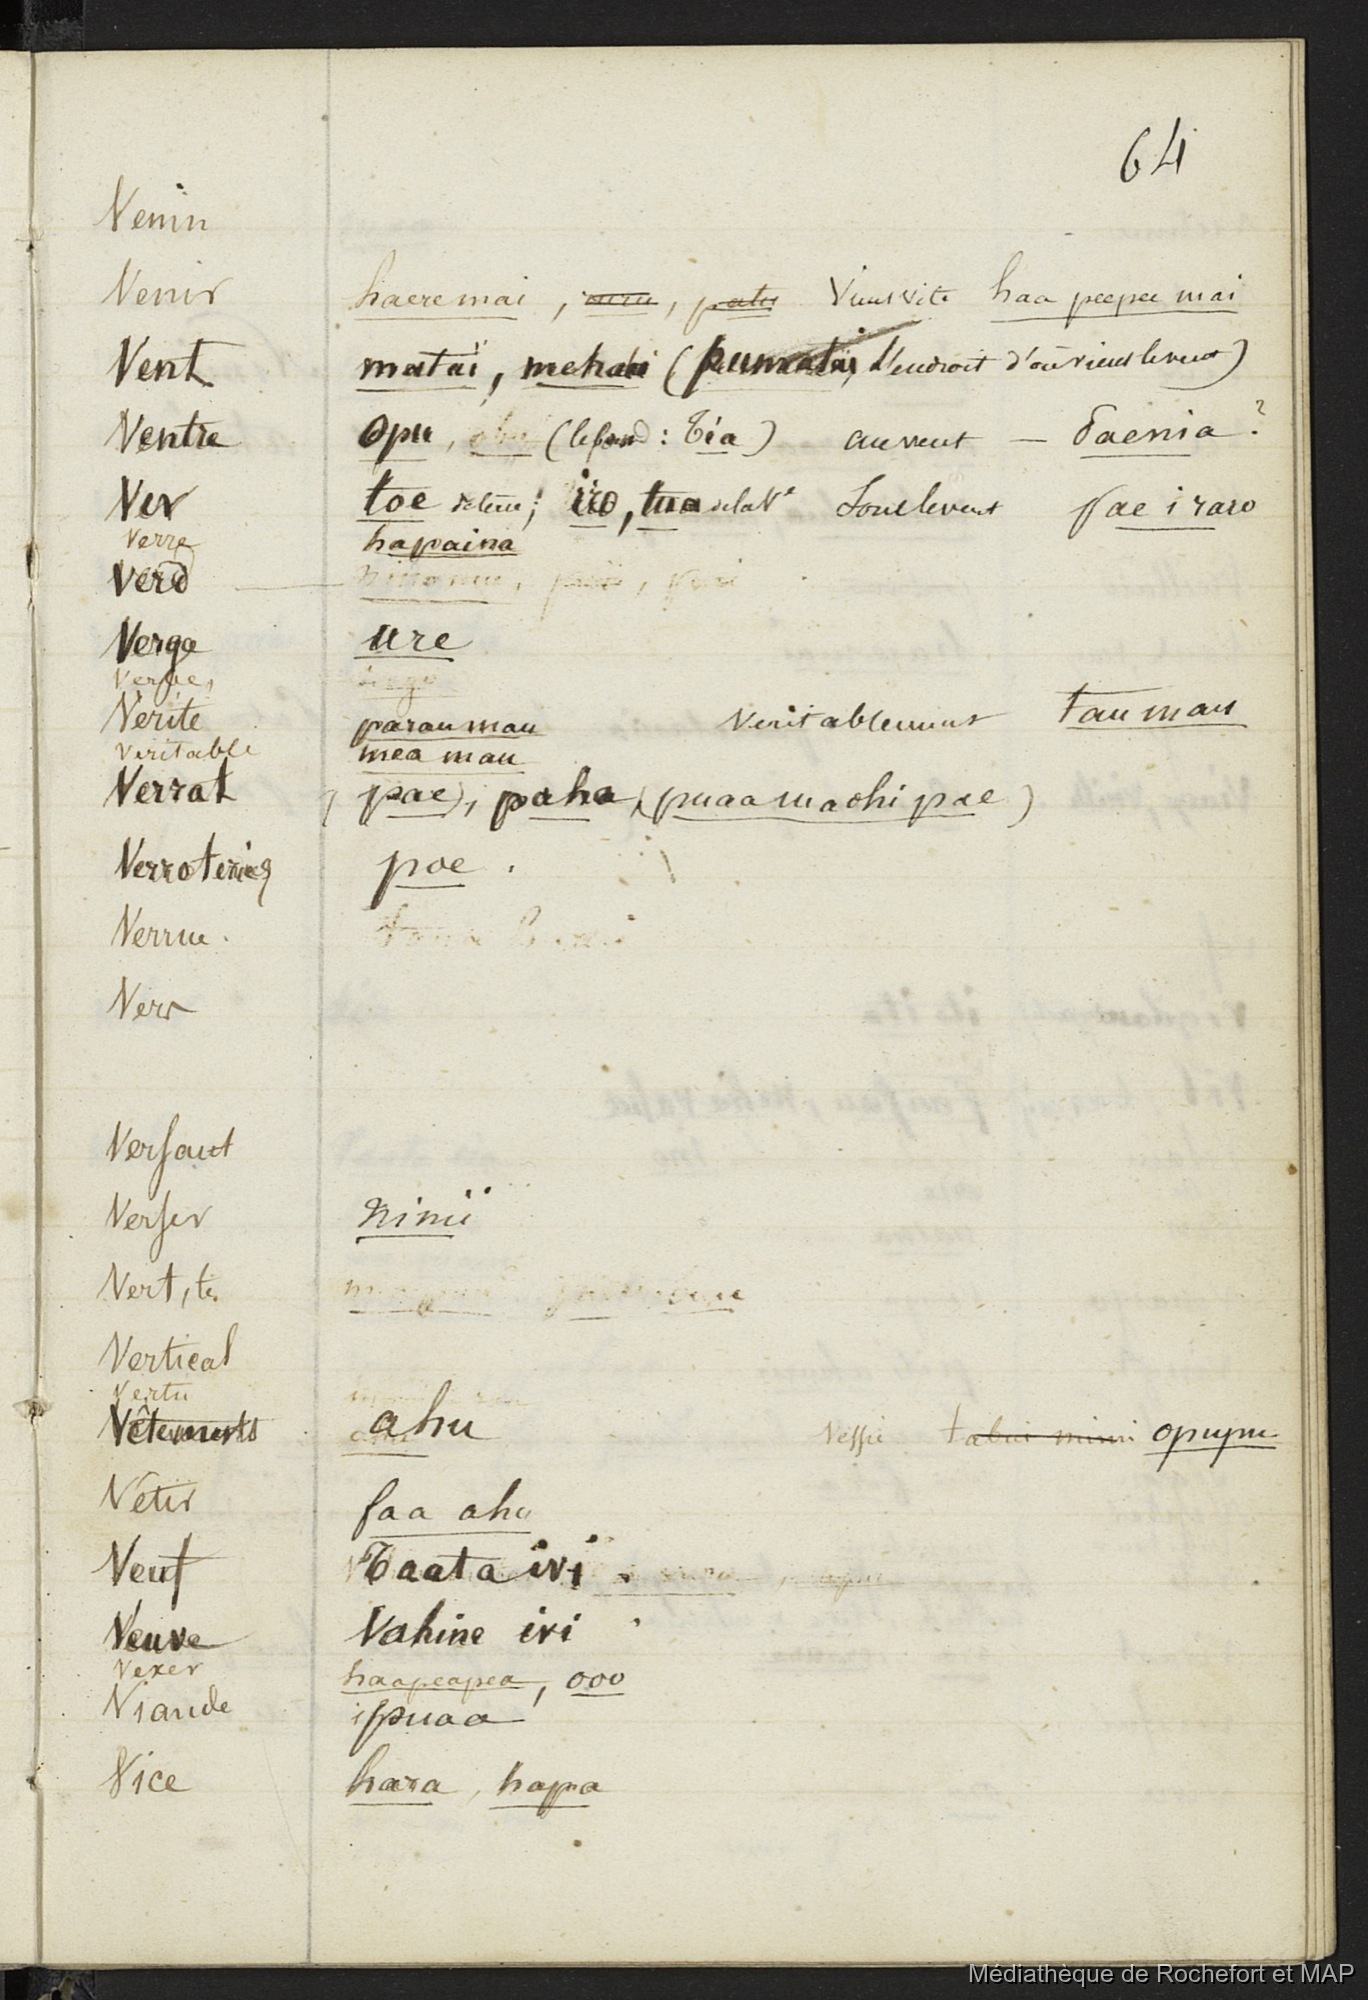 64
Venin
Venir haere mai, Viens vite haa peepee mai
Vent matai, mehai (pumatai, l'endroit d'où vient le vent)
Ventre Opu, obu (le fond : Tia) au vent — Taenia ?
Ver toe de terre; iro, tua de la Vde Sous le vent Pae i raro
Verre hapaina
Verd
Verge ure
Verge,
Verité parau mau Veritablement Tau mau
Veritable mea mau
Verrat (pae), paha, (puaa maohi pae)
Verroteries poe.
Verrue.
Vers
Versant
Verser Ninii
Vert, te
Vertical
Vertu
Vêtements ahu Vessie tabui mimi opupu
Vêtir faa ahu
Veuf Taata ivi
Veuve Vahine ivi
Vexer haapeapea, ooo
Viande ipuaa
Vice hara, hapa
Médiathèque de Rochefort et MAP